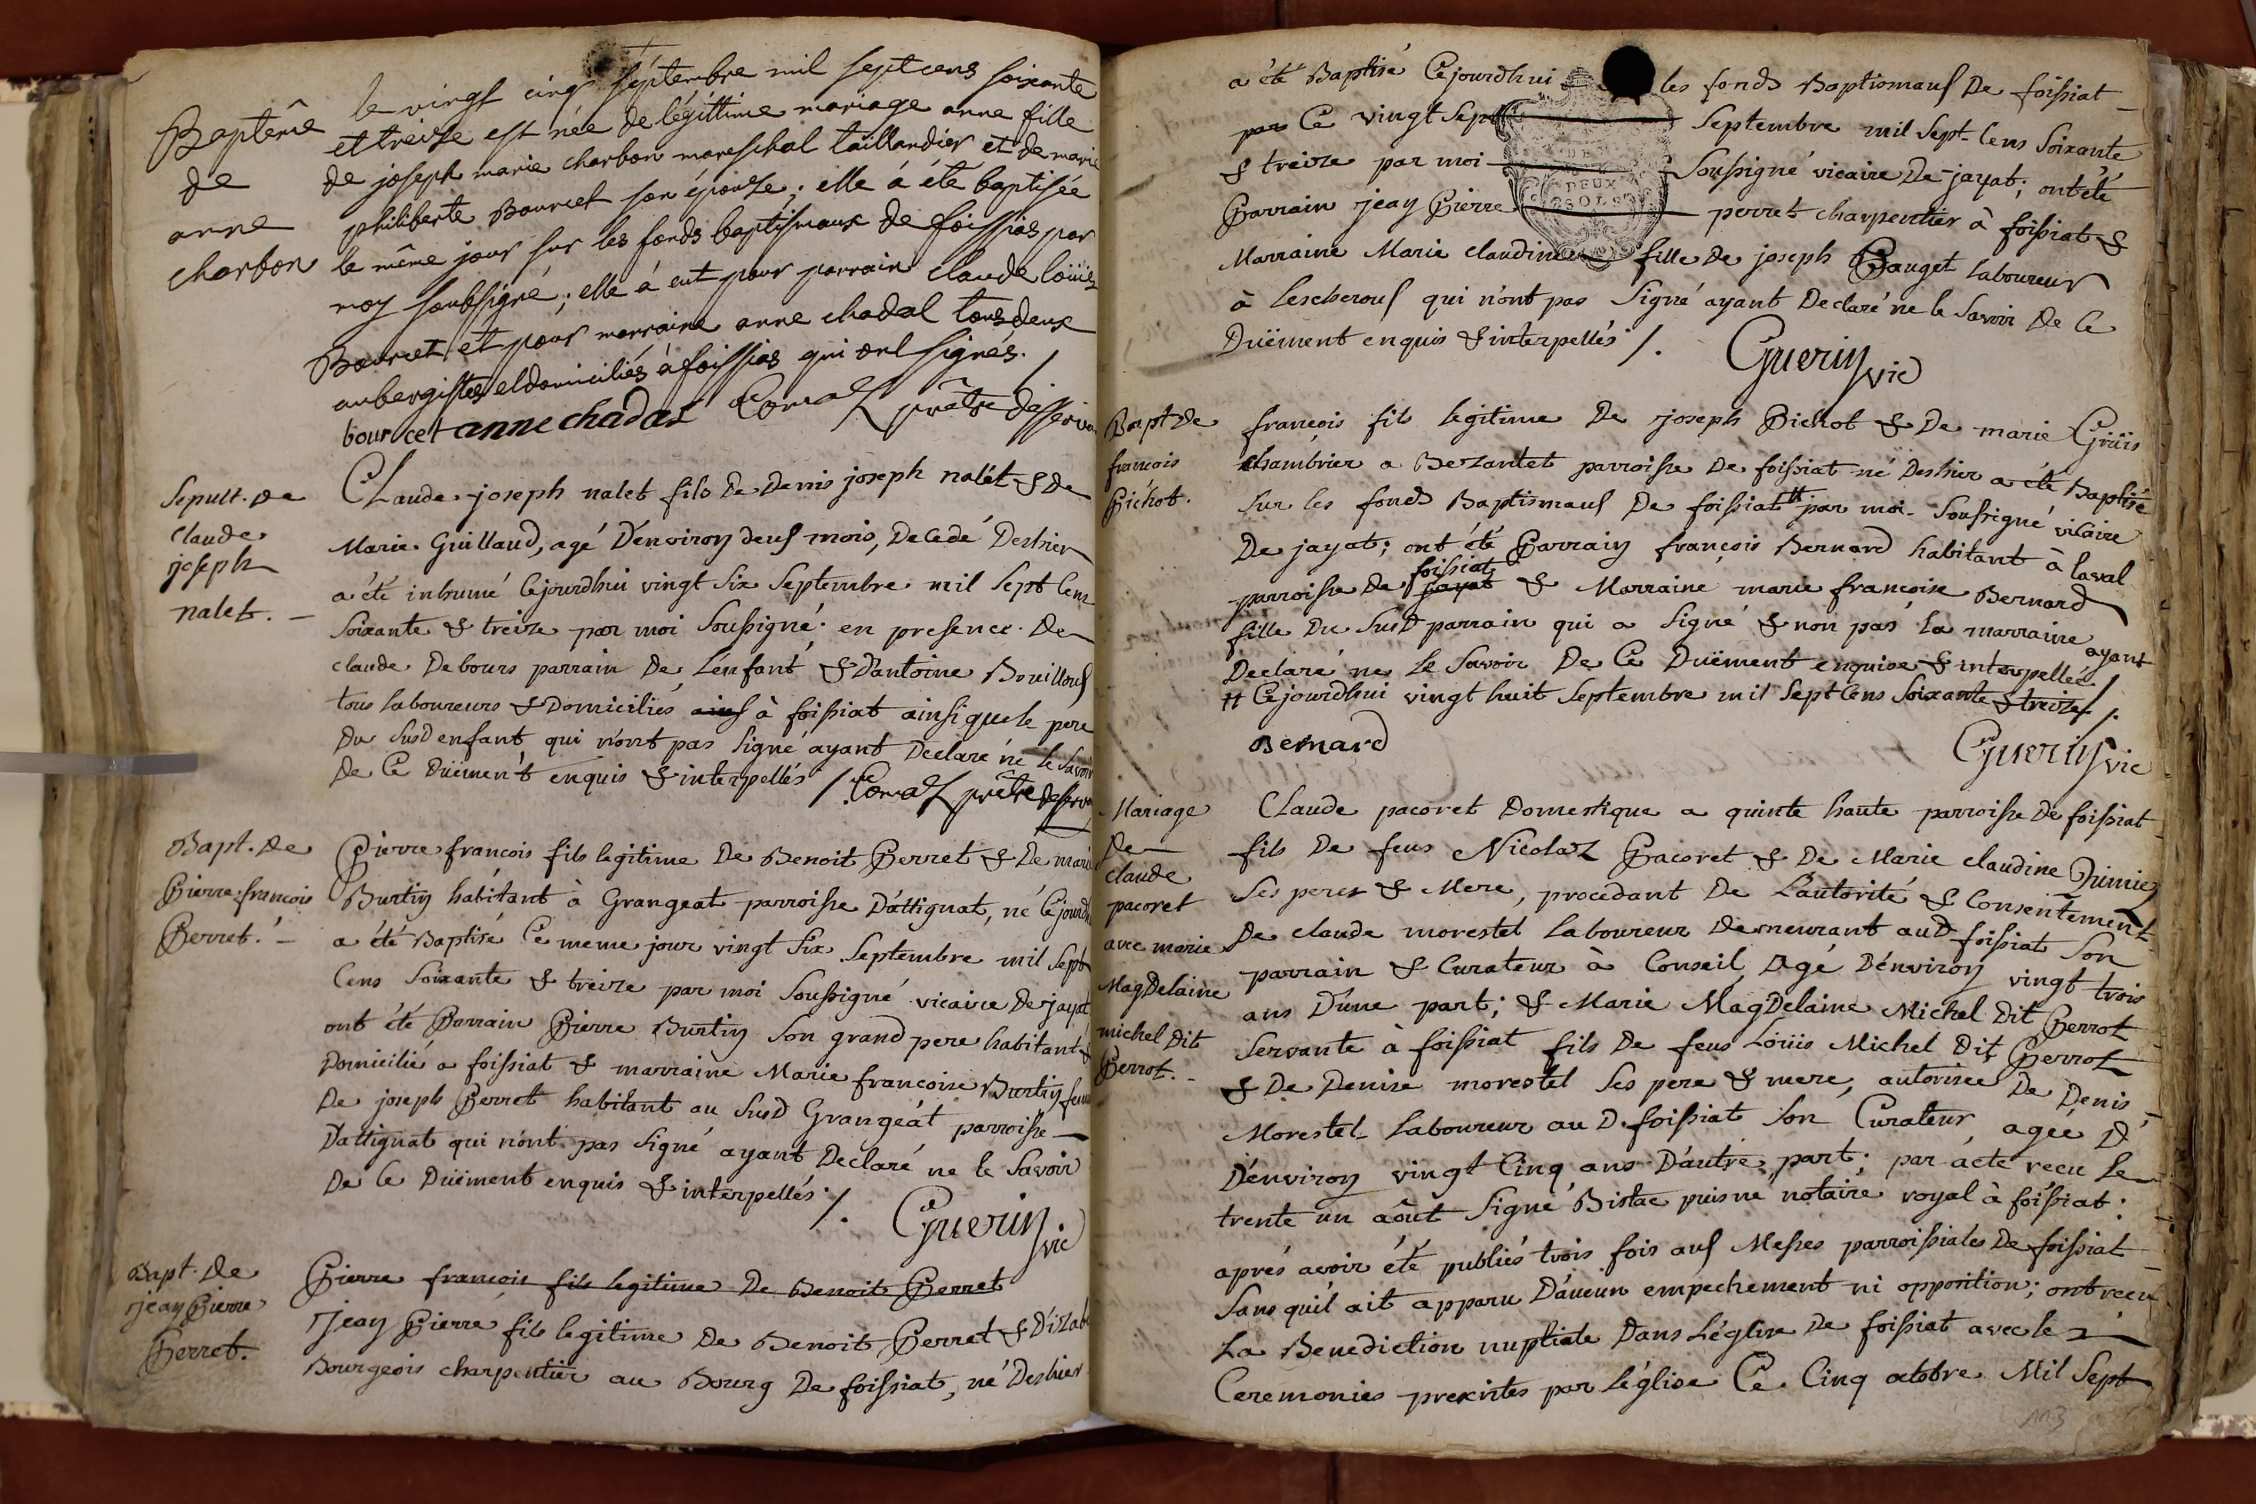 Baptême
de
anne
charbon
le vingt cinq septembre mil sept cens soixante
et treize est née de légittime mariage anne fille
de joseph marie charbon mareschal taillandier et de marie
philiberte Bourcet son épouse ; elle à été baptisée
le même jour sur les fonds baptismaux de foissias par
moy soubsigné ; elle à eut pour parrain claude loüis
Bourcet et pour marraine anne chadal tous deux
aubergistes et domiciliés à foissias qui ont signés. /
bourcet anne chadal prêtre desserv
Sepult. de
Claude
joseph
nalet. —
Claude joseph nalet fils de denis joseph nalet & de
Marie Guillaud, agé D'environ deux mois, Decedé Deshier
a été inhumé Cejourdhui vingt Six Septembre mil Sept Cens
Soixante & treize par moi Soussigné en presence De
claude Debours parrain De L'enfant & D'antoine Bouilloux
tous laboureurs & Domiciliés à foissiat ainsi que le pere
Du Susd enfant qui n'ont pas Signé ayant Declaré ne le Savoir
De Ce Duëment enquis & interpellés /. prêtre desserv
Bapt. De
Pierre françois
Perret. —
Pierre françois fils legitime De Benoit Perret & De marie
Burtin habitant à Grangeat parroisse D'attignat, né Cejourdh
a été Baptisé Ce meme jour vingt Six Septembre mil Sept
Cens Soixante & treize par moi Soussigné vicaire De jayat
ont été Parrain Pierre Burtin Son grand pere habitant &
Domicilié a foissiat & marraine Marie françoise Burtin fem
De joseph Perret habitant au Susd Grangeat parroisse
D'attignat qui n'ont pas Signé ayant Declaré ne le Savoir
De Ce Duëment enquis & interpellés /.
Guerin vic
Bapt. De
jean Pierre
Perret.
Pierre françois fils legitime De Benoit Perret
Jean Pierre fils legitime De Benoit Perret & D'izab
Bourgeois charpentier au Bourg De foissiat, né Deshier
a été Baptisé Cejourdhui les fonds Baptismaux De foissiat
par Ce vingt Sept Septembre mil Sept Cens Soixante
& treize par moi Soussigné vicaire De jayat ; ont été
DEUX
SOLS
Parrain jean Pierre perret charpentier à foissiat &
Marraine Marie claudine fille De joseph Pauget Laboureur
à Lescheroux qui n'ont pas Signé ayant Declaré ne le Savoir De Ce
Duëment enquis & interpellés /.
Guerin vic
Bapt De
françois
Pichot.
françois fils legitime De joseph Pichot & De marie
chambrier a Bezantet parroisse De foissiat né Deshier a été Baptisé
Sur les fonds Baptismaux De foissiat # par moi Soussigné vicaire
De jayat ; ont été Parrain françois Bernard habitant à laval
foissiat
parroisse De jayat & Marraine marie françoise Bernard
fille Du Susd parrain qui a Signé & non pas la marraine ayant
Declaré ne le Savoir De Ce Duëment enquise & interpellée
# Cejourdhui vingt huit Septembre mil Sept Cens Soixante & treize /.
Bernard
Guerin vic
Mariage
De
claude
pacoret
avec marie
MagDelaine
michel dit
Perrot. —
Claude pacoret Domestique a quinte haute parroisse De foissiat
fils De feus Nicolas Pacoret & De Marie claudine
Ses peres & Mere, procedant De L'autorité & Consentement
De claude morestel Laboureur Demeurant aud foissiat Son
parrain & Curateur à Conseil agé D'environ vingt trois
ans D'une part ; & Marie MagDelaine Michel Dit Perrot
Servante à foissiat fils De feus Loüis Michel Dit Perrot
& De Denise morestel Ses pere & mere, autorisee De Denis
Morestel Laboureur au D. foissiat Son Curateur agée D
D'environ vingt Cinq ans D'autre part ; par acte recu le
trente un août Signé puisne notaire royal à foissiat :
aprés avoir été publiés trois fois aux Messes parroissiales De foissiat
Sans qu'il ait apparu D'aucun empechement ni opposition ; ont recu
La Benediction nuptiale Dans L'église De foissiat avec le
Ceremonies prescrites par L'église Ce Cinq octobre Mil Sept
113